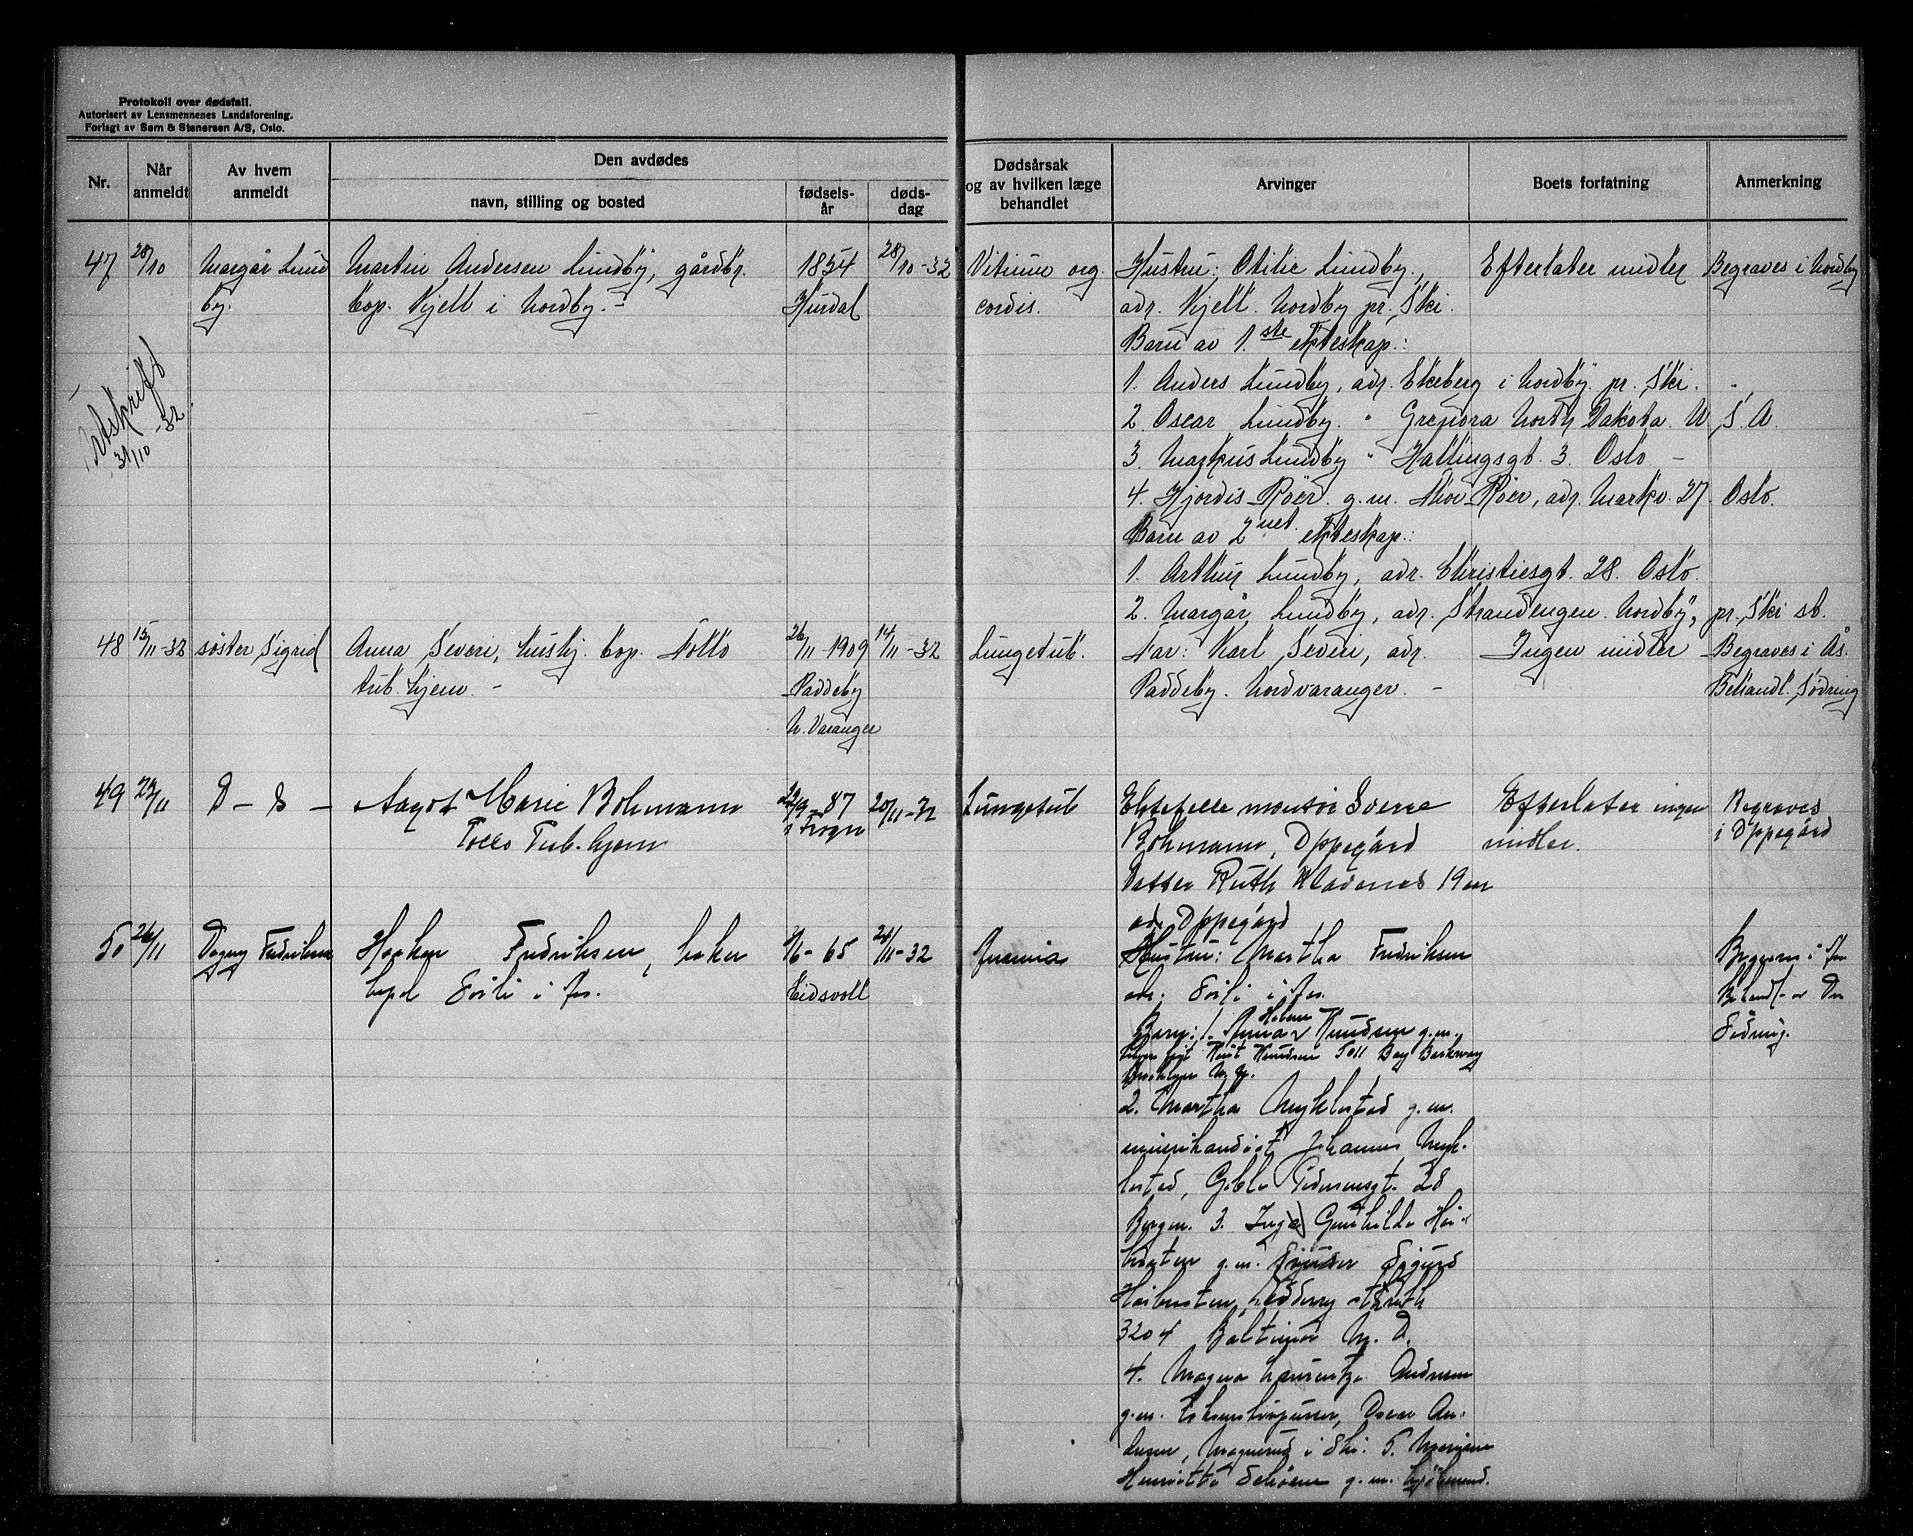 Protokoll over dødsfall.
Autorisert av Lensmennenes Landsforening.
Forlagt av Sem & Stenersen A/S, Oslo.
Nr.
Når
anmeldt
Av hvem
anmeldt
Den avdødes
navn, stilling og bosted
fødsels-
år
døds-
dag
Dødsårsak
og av hvilken læge
behandlet
Arvinger
Boets forfatning
Anmerkning
47 28/10 Margår Lund
by.
Martin Andersen Lundby, gårdbr.
bop. Kjell i Nordby. -
1854
Hurdal
28/10-32
Vitium org.
cordis.
Hustru: Otilie Lundby.,
adr. Kjell. Nordby pr. Ski.
Barn av 1.ste ekteskap.:
1. Anders Lundby, adr. Ekeberg i Nordby. pr. Ski.
2. Oscar Lundby. " Grenora North Dakota. U.S.A.
3. Markus Lundby " Hallingsgt. 3. Oslo -
4. Hjordis Röer. g.m. Thor Röer, adr. Markv. 27. Oslo.
Barn av 2net. ekteskap.:
1. Arthur Lundby, adr. Christiesgt. 28. Oslo.
2. Margår Lundby, adr. Strandengen. Nordby, pr. Ski st.
Efterlater midler
Begraves i Nordby
Utskrift
31/10-32.
48 15/11-32 söster Sigrid
Anna Severi, hushj. bop. Follo
tub. hjem -
26/11-1909
Paddeby
N. Varanger
14/11-32
Lungetub.
Far: Karl Severi, adr.
Paddeby. Nordvaranger. -
Ingen midler
Begraves i Ås.
Behandl. Sødring
49 23/11 D - S -
Aagot Marie Bohmann
Follo Tub. hjem
22/9-87
i Frogn
20/11-32
Lungetub
Ektefelle montör Sverre
Bohmann, Oppegård
Datter Ruth Kladenes 19 aar
adr. Oppegård
Efterlater ingen
midler.
Begraves
i Oppegård
50 26/11 Dagny Fredriksen
Haakon Fredriksen, baker
bopel Solli i Ås.
1/6-65
Eidsvoll
24/11-32
Anæmia
Hustru: Martha Fredriksen
adr. Solli i Ås.
Barn: 1. Anna Helene Knudsen g.m.
Knut Knudsen Bay
Brooklyn N.Y.
2. Martha Myklestad g.m.
Johannes Myk-
lestad, Gable Pedersensgt. 28
Bergen. 3. Inga Gunhilda Høi-
g.m. Sigurd
3204 Baltimor M.D.
4. Magna Laurentze Andresen
g.m. Oscar An-
dresen, Magnerud i Ski. 5. Marjane
Henriette g.m.
Begraves i Ås
Behandl. av Dr.
Sødring.